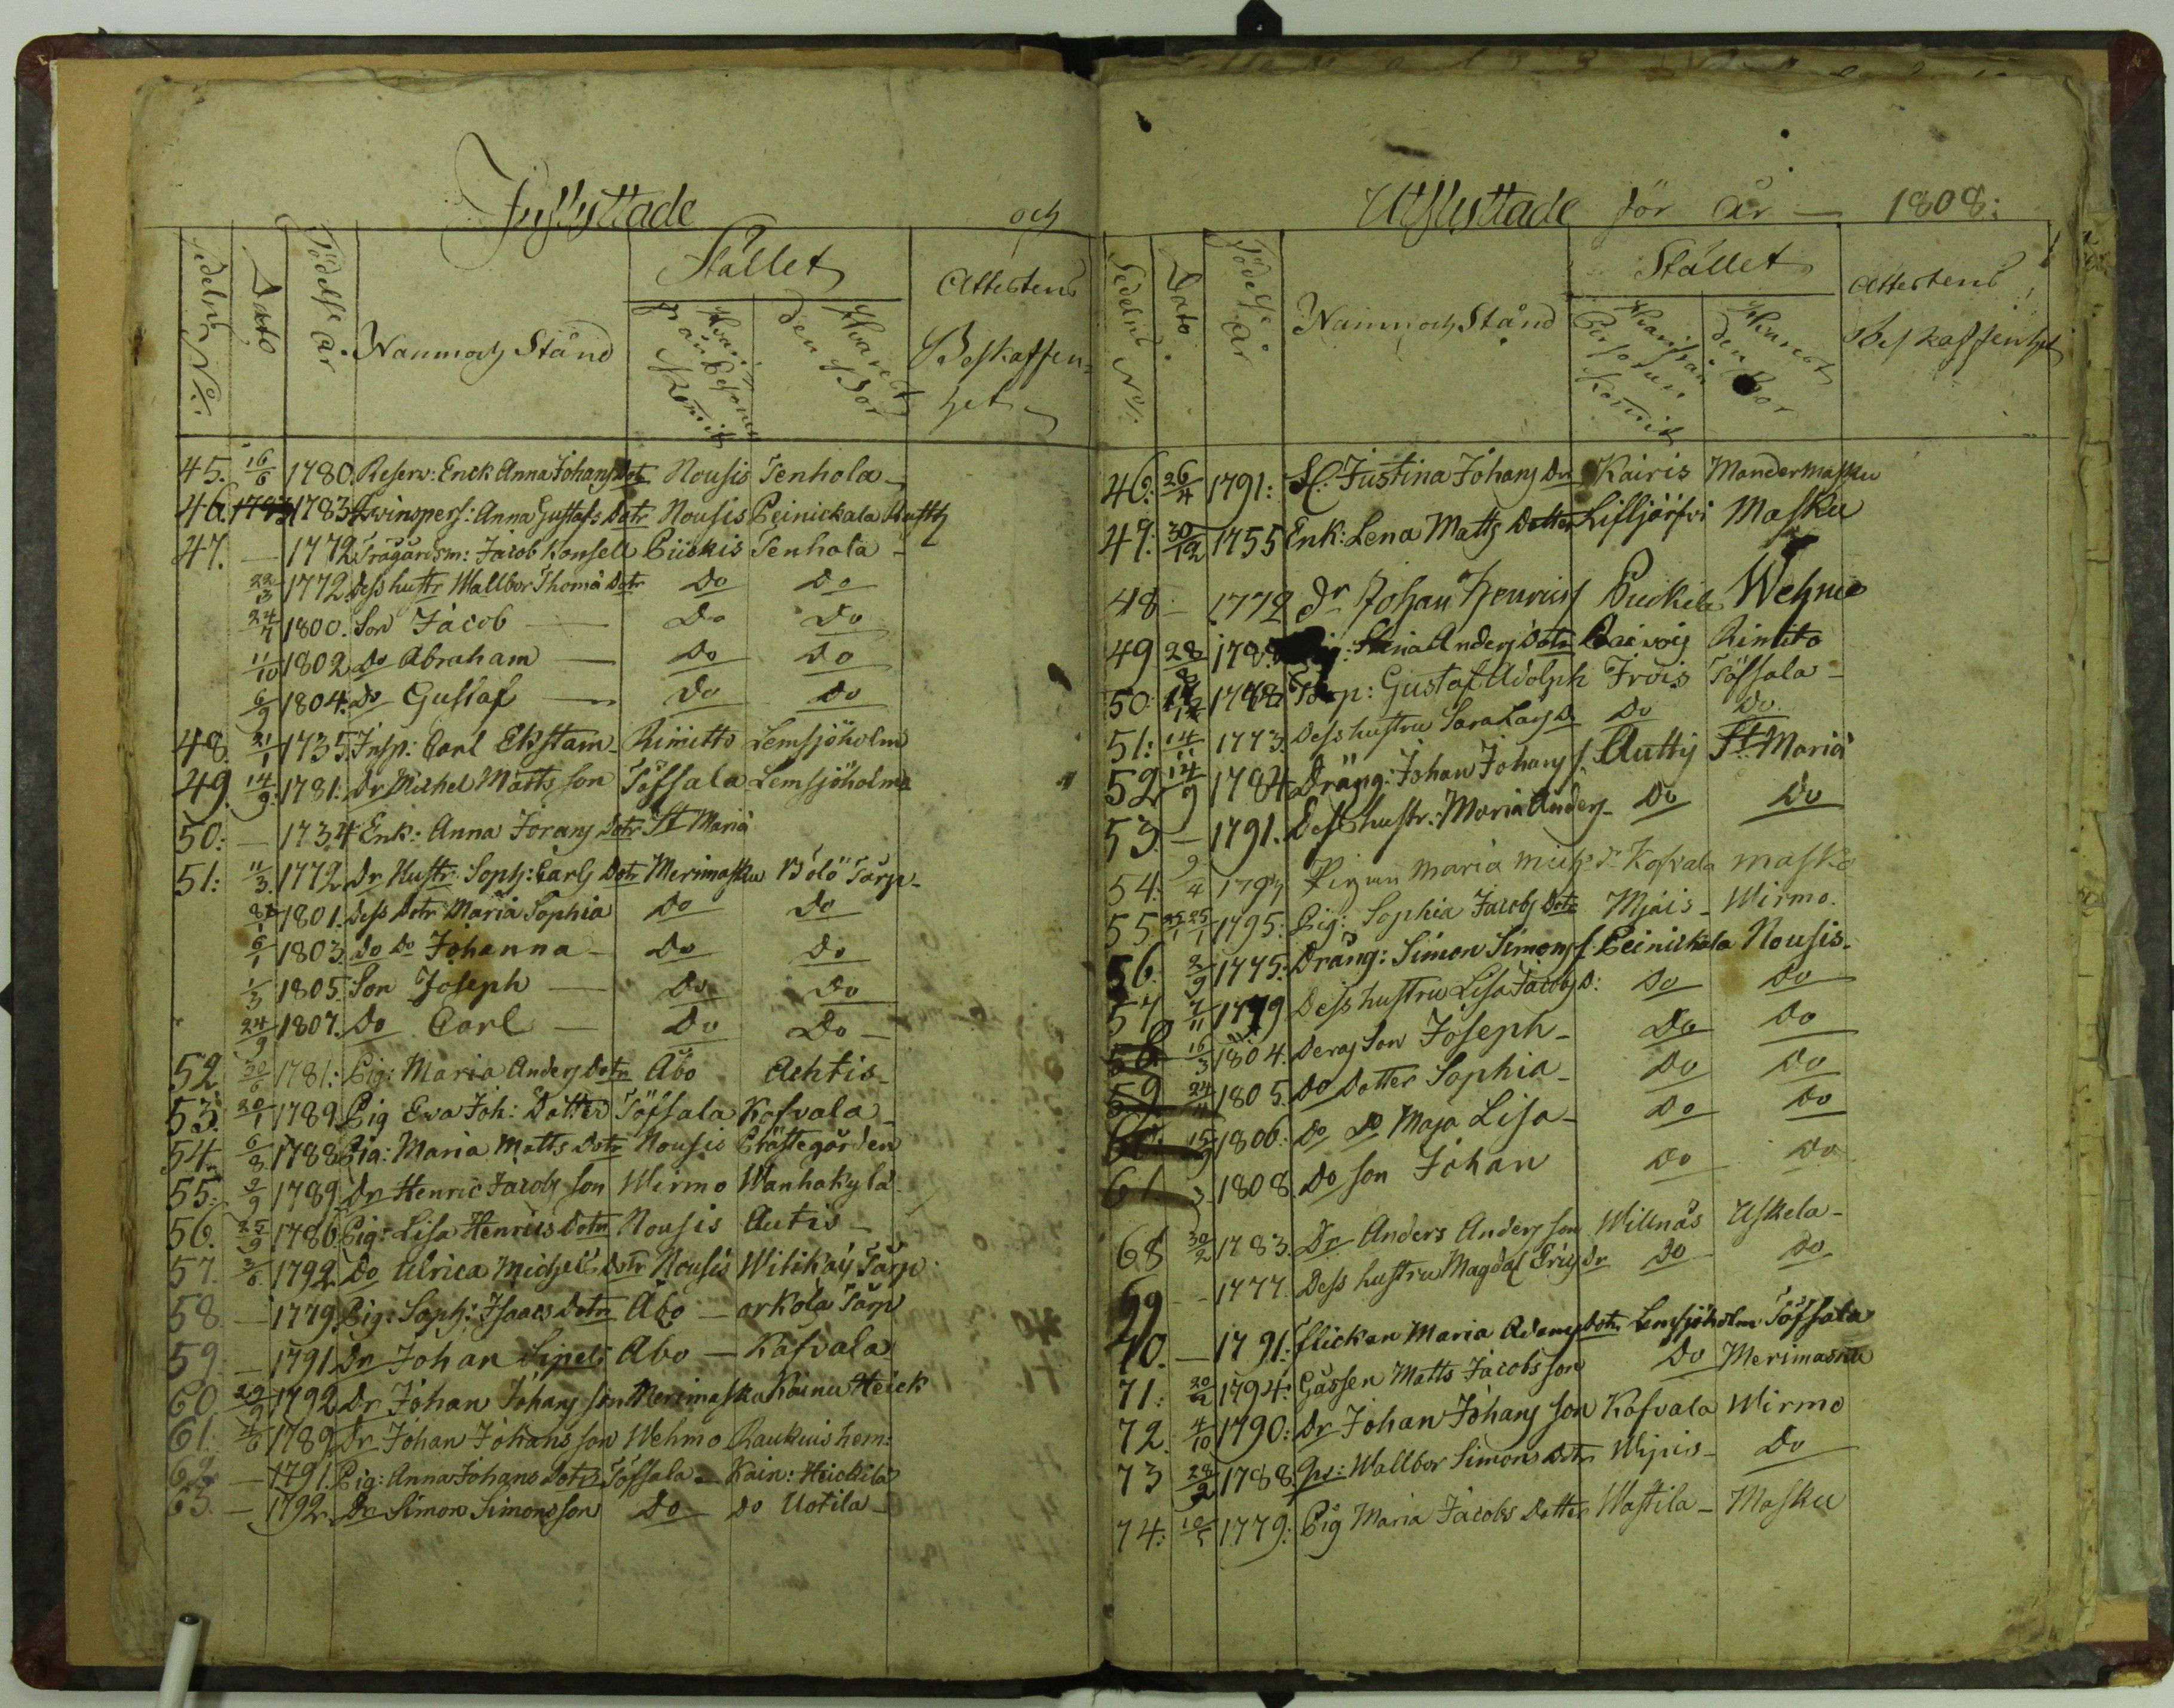 Inflyttade och
Sedelns No:
Dato
Födelse år
Namn och Stånd
Stället
Hvarifrån Personen Kommit
Hvarest den Bor
Attestens Beskaffenhet
45. 16/6 1780. Reserv: Enck Anna Johans Dotr Nousis Tenhola
46. 1783 Qwinspers: Anna Gustafs Dotr Nousis Peinickala
47. — 1772 Trägårdsm: Jacob Konsell Piickis Tenhola
22/3 1772. Dess hustr Wallbor Thoma Dotr Do Do
24/7 1800. Son Jacob — Do Do
11/10 1802 Do Abraham — Do Do
6/9 1804. Do Gustaf — Do Do
48. 21/1 1735. Insp: Carl Ekstam Rimitto Lemsjöholm
49. 14/9 1781. Dr Michel Matts son Töfsala Lemsjöholm
50: — 1734 Enk: Anna Jorans Dotr St Maria
51: 11/3 1772. Dr Hustr: Soph: Carls Dotr Merimasku Bolö Tårp
1801. Dess Dotr Maria Sophia Do Do
6/1 1803. Do Do Johanna — Do Do
1/3 1805. Son Joseph — Do Do
24/9 1807. Do Carl — Do Do
52 30/6 1781: Pig: Maria Anders Dotr Åbo Achtis
53. 20/1 1789. Pig Ewa Joh: Dotter Töfsala Kofvala
54. 6/8 1788 Pig: Maria Matts Dotr Nousis Prästegården
55: 2/9 1789. Dr Henric Jacobs son Wirmo Wanhakylä
56. 25/9 1786. Pig: Lisa Henrics Dotr Nousis Autis
57. 3/6 1792. Do Ulrica Michels Dotr Nousis Tårp
58. — 1779. Pig: Soph: Isaacs Dotr Åbo — arkola Tårp
59. — 1791 Dr Johan Sipeli Abo — Kofvala
60. 29/9 1792 Dr Johan Johans son Merimasku Kainu Heick
61: 4/6 1789. Dr Johan Johans son Wehmo Raukuis hem:
62 — 1791. Pig: Anna Johans Dotr Töfsala — Kain: Heickilä
63. — 1792. Dr Simon Simons son Do do Uotila
Utflyttade för år — 1808:
Sedelns No:
Dato
Födelse år
Namn och Stånd
Stället
Hvarifrån Personen Kommit
Hvarest den Bor
Attestens Beskaffenhet
46: 26/4 1791: Justina Johans Dr Kairis Mandermasku
47: 30/12 1755 Enk: Lena Matts Dotter Masku
48 — 1772 Dr Johan Henrics Puckila Wehmo
49 28 Stina Anders Dotr Rimito
50. Torp: Gustaf Adolph Frois Töfsala
51: 14/11 1773. Dess hustru Sara Lars D Do Do
52 14/9 1784 Dräng: Johan Johans s Autty St Maria
53 — 1791. Dess hustr: Maria Anders Do Do
54: 9/4 Pigan Maria Mich: Dr Kofvala masko
55 25/1 1795: Pig: Sophia Jacobs Dotr Mjäis Wirmo.
56. 2/9 1775: Dräng: Simon Simons s Peinickala Nousis
57 7/11 1779 Dess hustru Lisa Jacobs D: Do Do
58 16/3 1804. Deras Son Joseph Do Do
59. 24/11 1805. Do Dotter Sophia Do Do
60: 15/9 1806: Do Do Maja Lisa Do Do
61 3 1808 Do son Johan Do Do
68 30/2 1783. Dr Anders Anders son Willnäs Uskela
69 — 1777. Dess hustru Magdal Erics Dr Do Do
70. — 1791: Flickan Maria Adams Dotr Lemsjöholm Töfsala
71: 20/2 1794: Gåssen Matts Jacobs son Do Merimasku
72. 4/10 1790: Dr Johan Johans son Kofvala Wirmo
73 28/2 1788. Wallbor Simons Dotr Wipis Do
74: 1779: Pig Maria Jacobs Dotter Wastila Masku